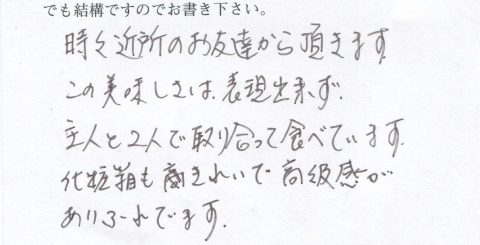 でも結構ですのでお書き下さい。
時々近所のお友達から頂きます
この美味しさは、表現出来ず、
主人と2人で取り合って食べています。
化粧箱も きれいで高級感が
ありふれてます。